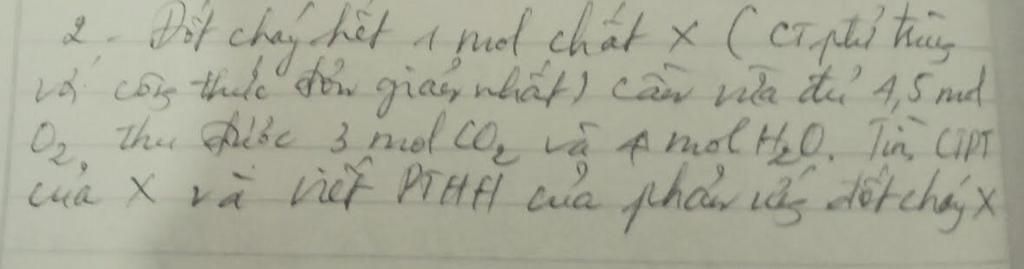 2 - Đốt cháy hết 1 mol chất X (CT phtử trùng
với công thức đơn giản nhất) cần vừa đủ 4,5 mol
O2, thu được 3 mol CO2 và 4 mol H2O. Tìm CTPT
của X và viết PTHH của phản ứng đốt cháy X